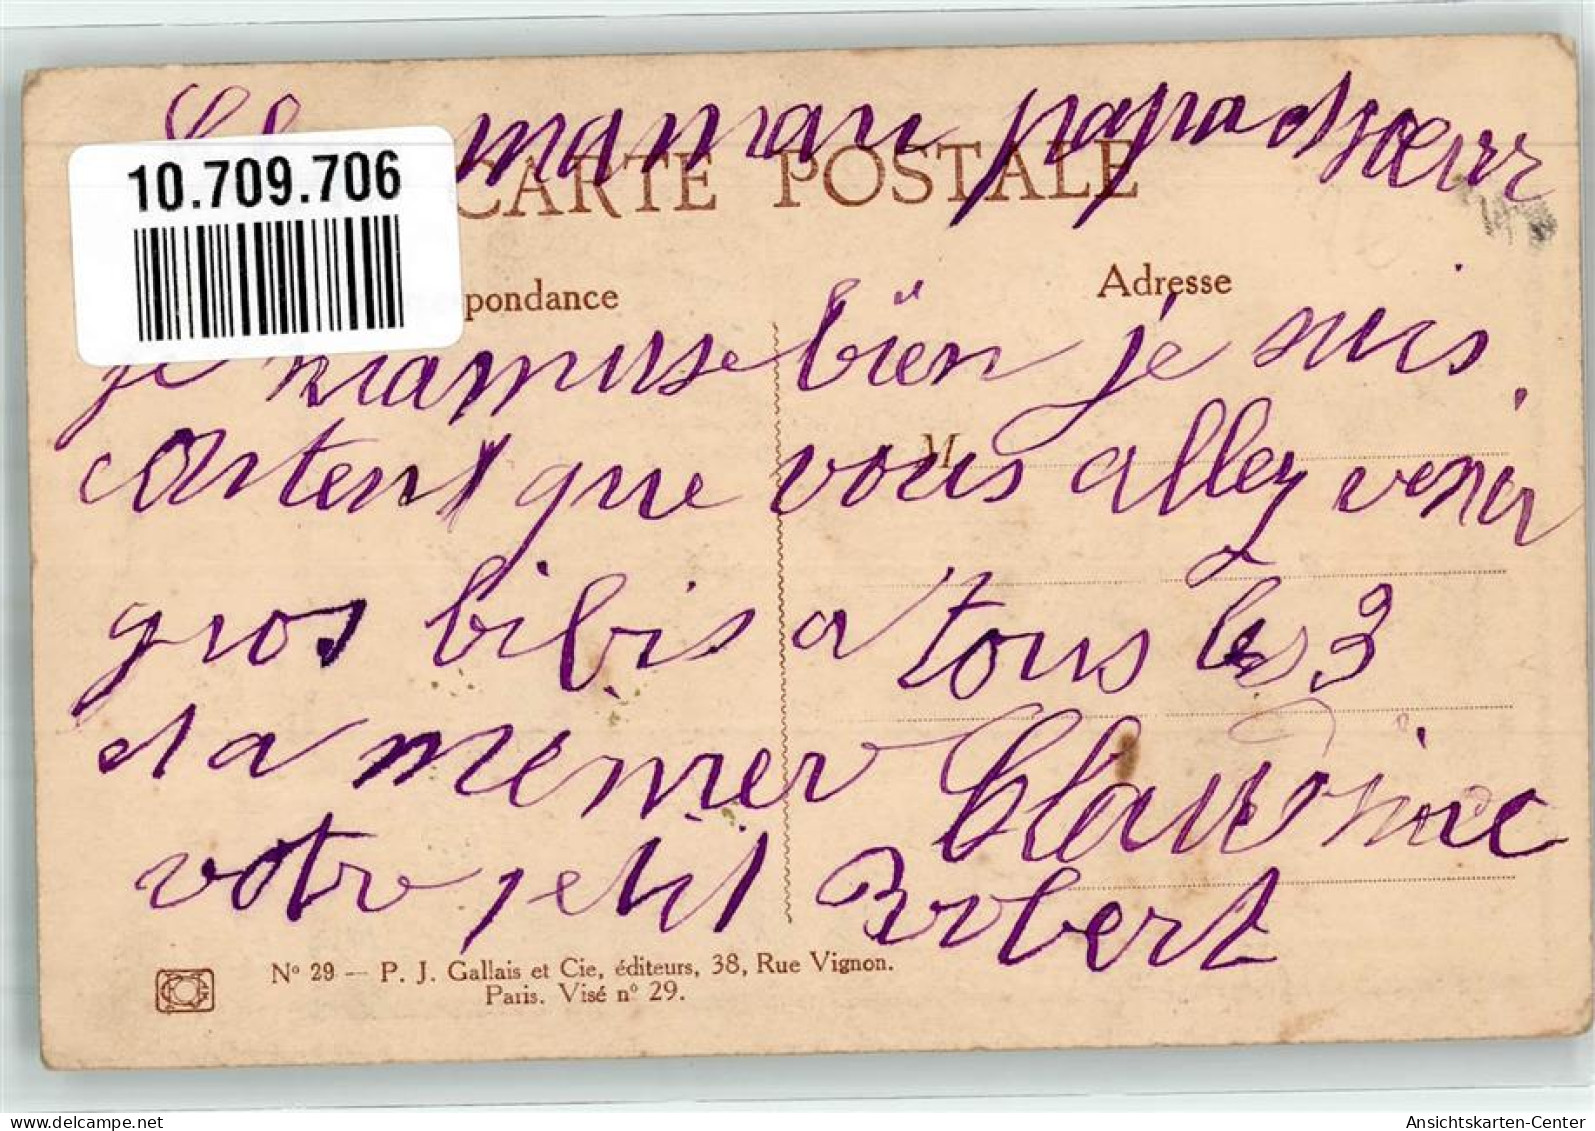 10.709.706
maman papa et sœurr
CARTE POSTALE
pondance
Adresse
je mamuse bien je suis
contens que vous allez venir
M
gros bibis a tous les 3
et a mémer Claudine
votre petit Robert
Nº 29 — P. J. Gallais et Cie, éditeurs, 38, Rue Vignon.
Paris. Visé nº 29.
AnsichtsKarten-Center
delcampe.net